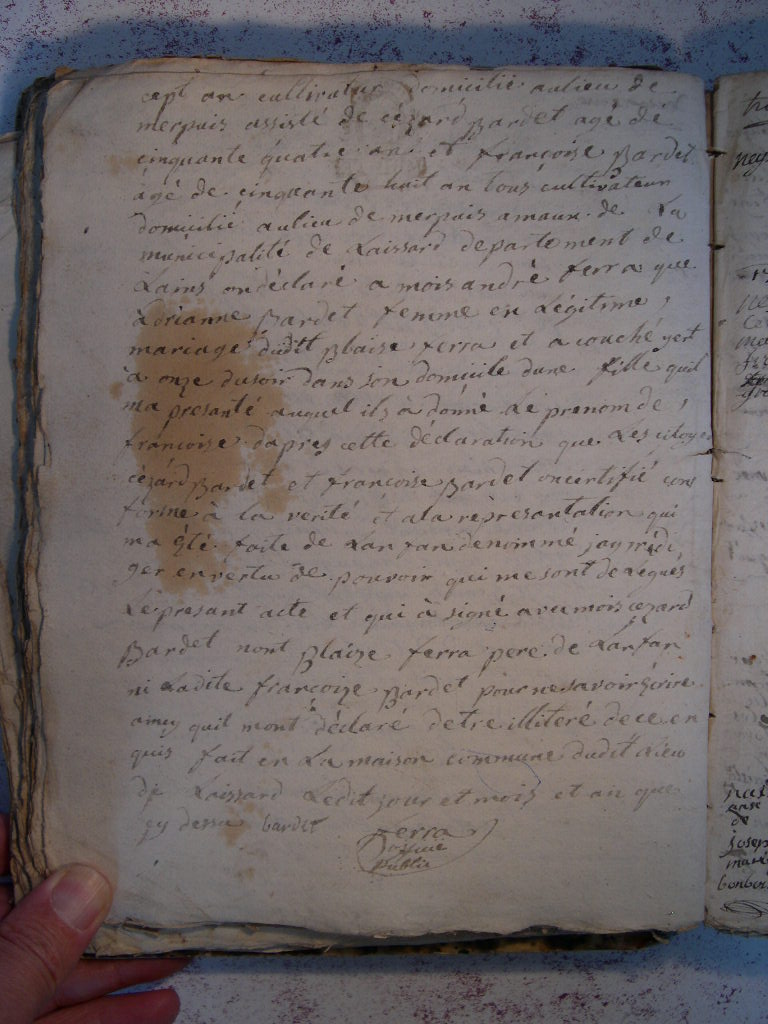 cept an cultivatur domicilié aulieu de
merpuis assisté de cézard Bardet agé de
cinquante quatre an et françoise Bardet
âgé de cinquante huit an tous cultivateur
domicilié aulieu de merpuis amaux de La
municipalité de Laissard departement de
Lains ondéclaré a mois andré ferra que
adrianne Bardet femme en Légitime
mariage dudit Blaise ferra et acouché yert
à onze dusoir dans son domicile dune fille quil
ma presanté auquel ils à donné Le prenom de
françoise daprés cette déclaration que Les citoyen
cézard Bardet et françoise Bardet oncertifié con
forme à La verité et ala représantation qui
ma été faite de Lanfan denommé jay rédi
ger envertu de pouvoir qui me sont délégués
Le présant acte et qui à signé avumois cezard
Bardet nont Blaize ferra pere de Lanfan
ni Ladite françoize Bardet pour ne savoir écrire
quil mont déclaré detre illiteré dece en
quis fait en La maison commune dudit Lieu
de Laissard Ledit jour et mois et an que
cy dessu bardet ferra
oficié
public
de
josep